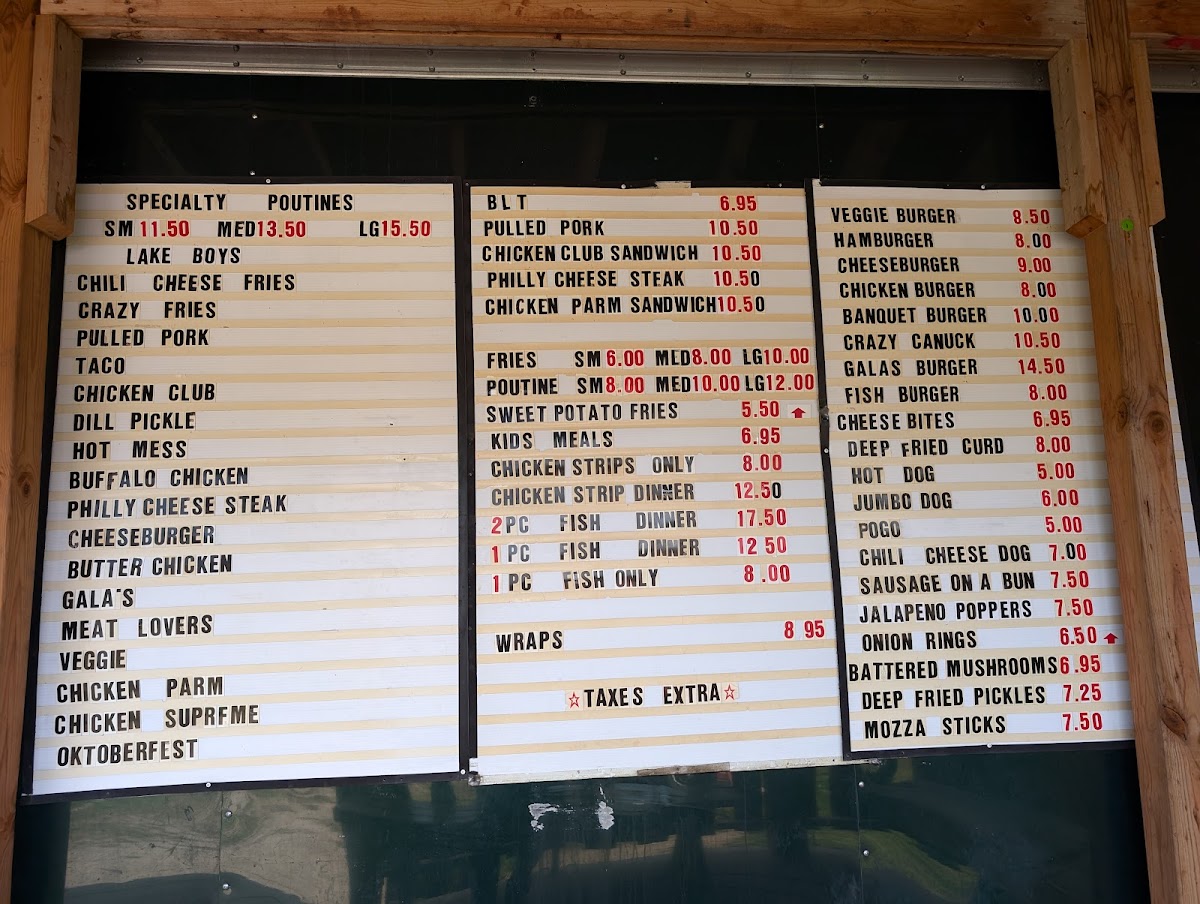 SPECIALTY POUTINES
SM 11.50 MED 13.50 LG 15.50
LAKE BOYS
CHILI CHEESE FRIES
CRAZY FRIES
PULLED PORK
TACO
CHICKEN CLUB
DILL PICKLE
HOT MESS
BUFFALO CHICKEN
PHILLY CHEESE STEAK
CHEESEBURGER
BUTTER CHICKEN
GALA'S
MEAT LOVERS
VEGGIE
CHICKEN PARM
CHICKEN SUPRFME
OKTOBERFEST
BLT 6.95
PULLED PORK 10.50
CHICKEN CLUB SANDWICH 10.50
PHILLY CHEESE STEAK 10.50
CHICKEN PARM SANDWICH 10.50
FRIES SM 6.00 MED 8.00 LG 10.00
POUTINE SM 8.00 MED 10.00 LG 12.00
SWEET POTATO FRIES 5.50
KIDS MEALS 6.95
CHICKEN STRIPS ONLY 8.00
CHICKEN STRIP DINNER 12.50
2 PC FISH DINNER 17.50
1 PC FISH DINNER 12 50
1 PC FISH ONLY 8.00
WRAPS 8 95
☆TAXES EXTRA☆
VEGGIE BURGER 8.50
HAMBURGER 8.00
CHEESEBURGER 9.00
CHICKEN BURGER 8.00
BANQUET BURGER 10.00
CRAZY CANUCK 10.50
GALAS BURGER 14.50
FISH BURGER 8.00
CHEESE BITES 6.95
DEEP FRIED CURD 8.00
HOT DOG 5.00
JUMBO DOG 6.00
POGO 5.00
CHILI CHEESE DOG 7.00
SAUSAGE ON A BUN 7.50
JALAPENO POPPERS 7.50
ONION RINGS 6.50
BATTERED MUSHROOMS 6.95
DEEP FRIED PICKLES 7.25
MOZZA STICKS 7.50